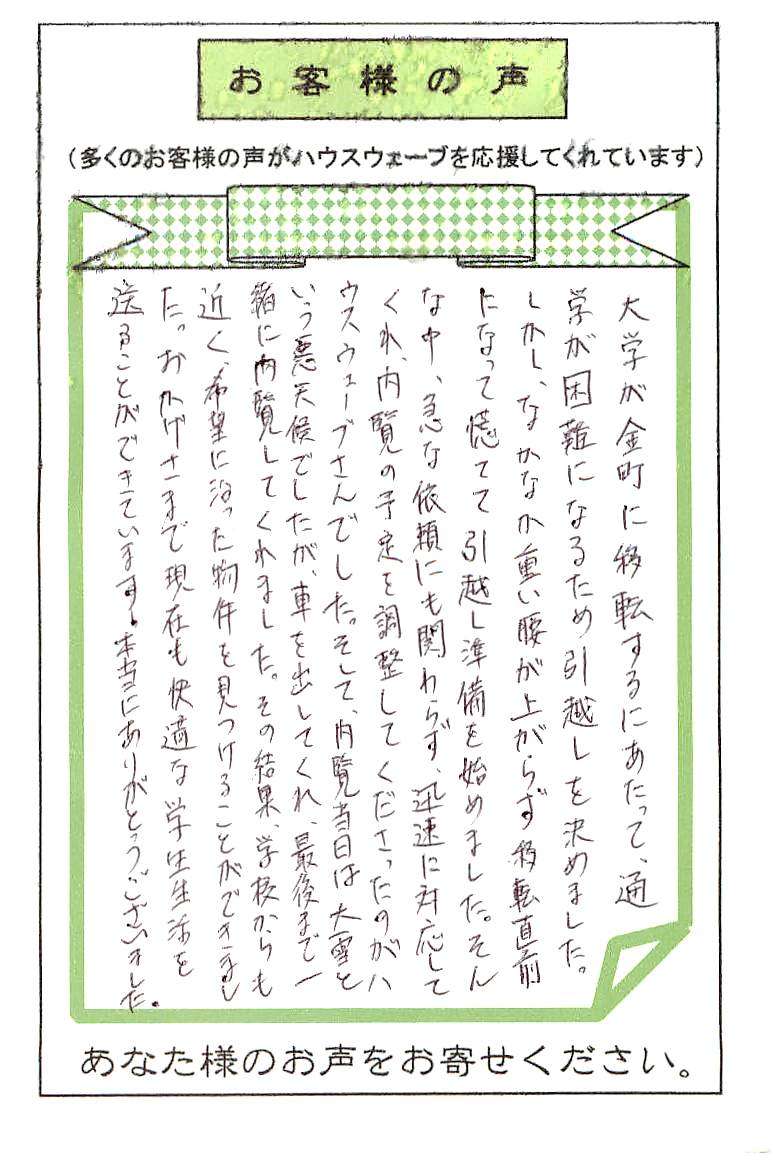 お客様の声
(多くのお客様の声がハウスウェーブを応援してくれています)
大学が金町に移転するにあたって、通
学が困難になるため引越しを決めました。
しかし、なかなか重い腰が上がらず移転直前
になって慌てて引越し準備を始めました。そん
な中、急な依頼にも関わらず、迅速に対応して
くれ、内覧の予定を調整してくださったのがハ
ウスウェーブさんでした。そして、内覧当日は大雪と
いう悪天候でしたが、車を出してくれ、最後まで一
緒に内覧してくれました。その結果、学校からも
近く、希望に沿った物件を見つけることができまし
た。おかげさまで現在も快適な学生生活を
送ることができています。本当にありがとうございました。
あなた様のお声をお寄せください。